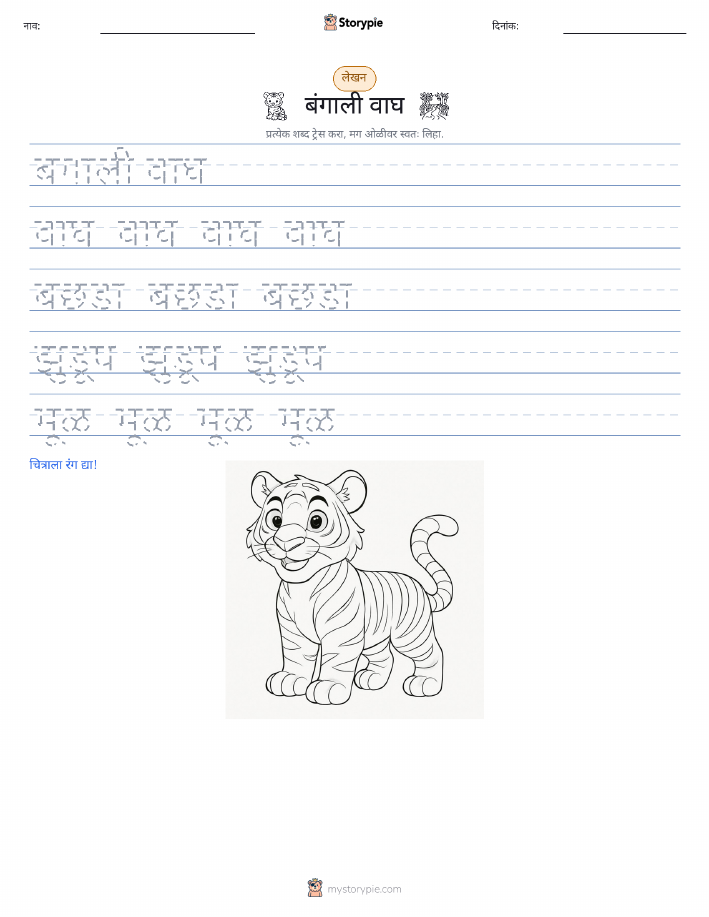 नाव:
Storypie
दिनांक:
लेखन
बंगाली वाघ
प्रत्येक शब्द ट्रेस करा, मग ओळीवर स्वतः लिहा.
बंगाली वाघ
वाघ वाघ वाघ वाघ
बछडा बछडा बछडा
झुडूप झुडूप झुडूप
मूळ मूळ मूळ मूळ
चित्राला रंग द्या!
mystorypie.com